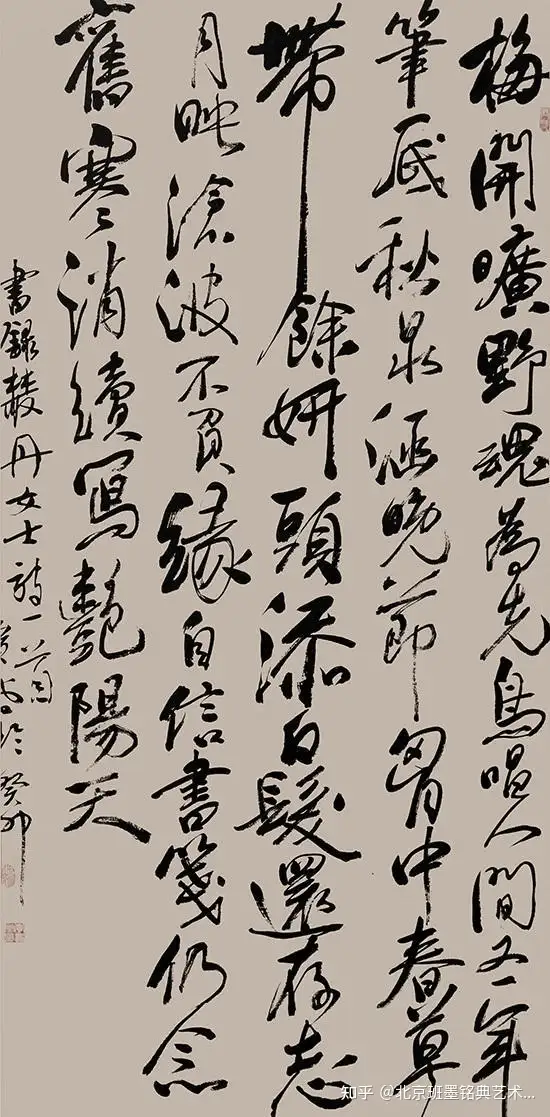 梅開曠野魂為先鳥唱人間又一年
筆底秋泉涵晚節胸中春草
帶餘妍頭添白髮還存志
月映滄波不負緣自信書箋仍念
舊寒消續寫艷陽天
書錄 丹女士詩一首
癸卯
知乎 @北京班墨铭典艺术...